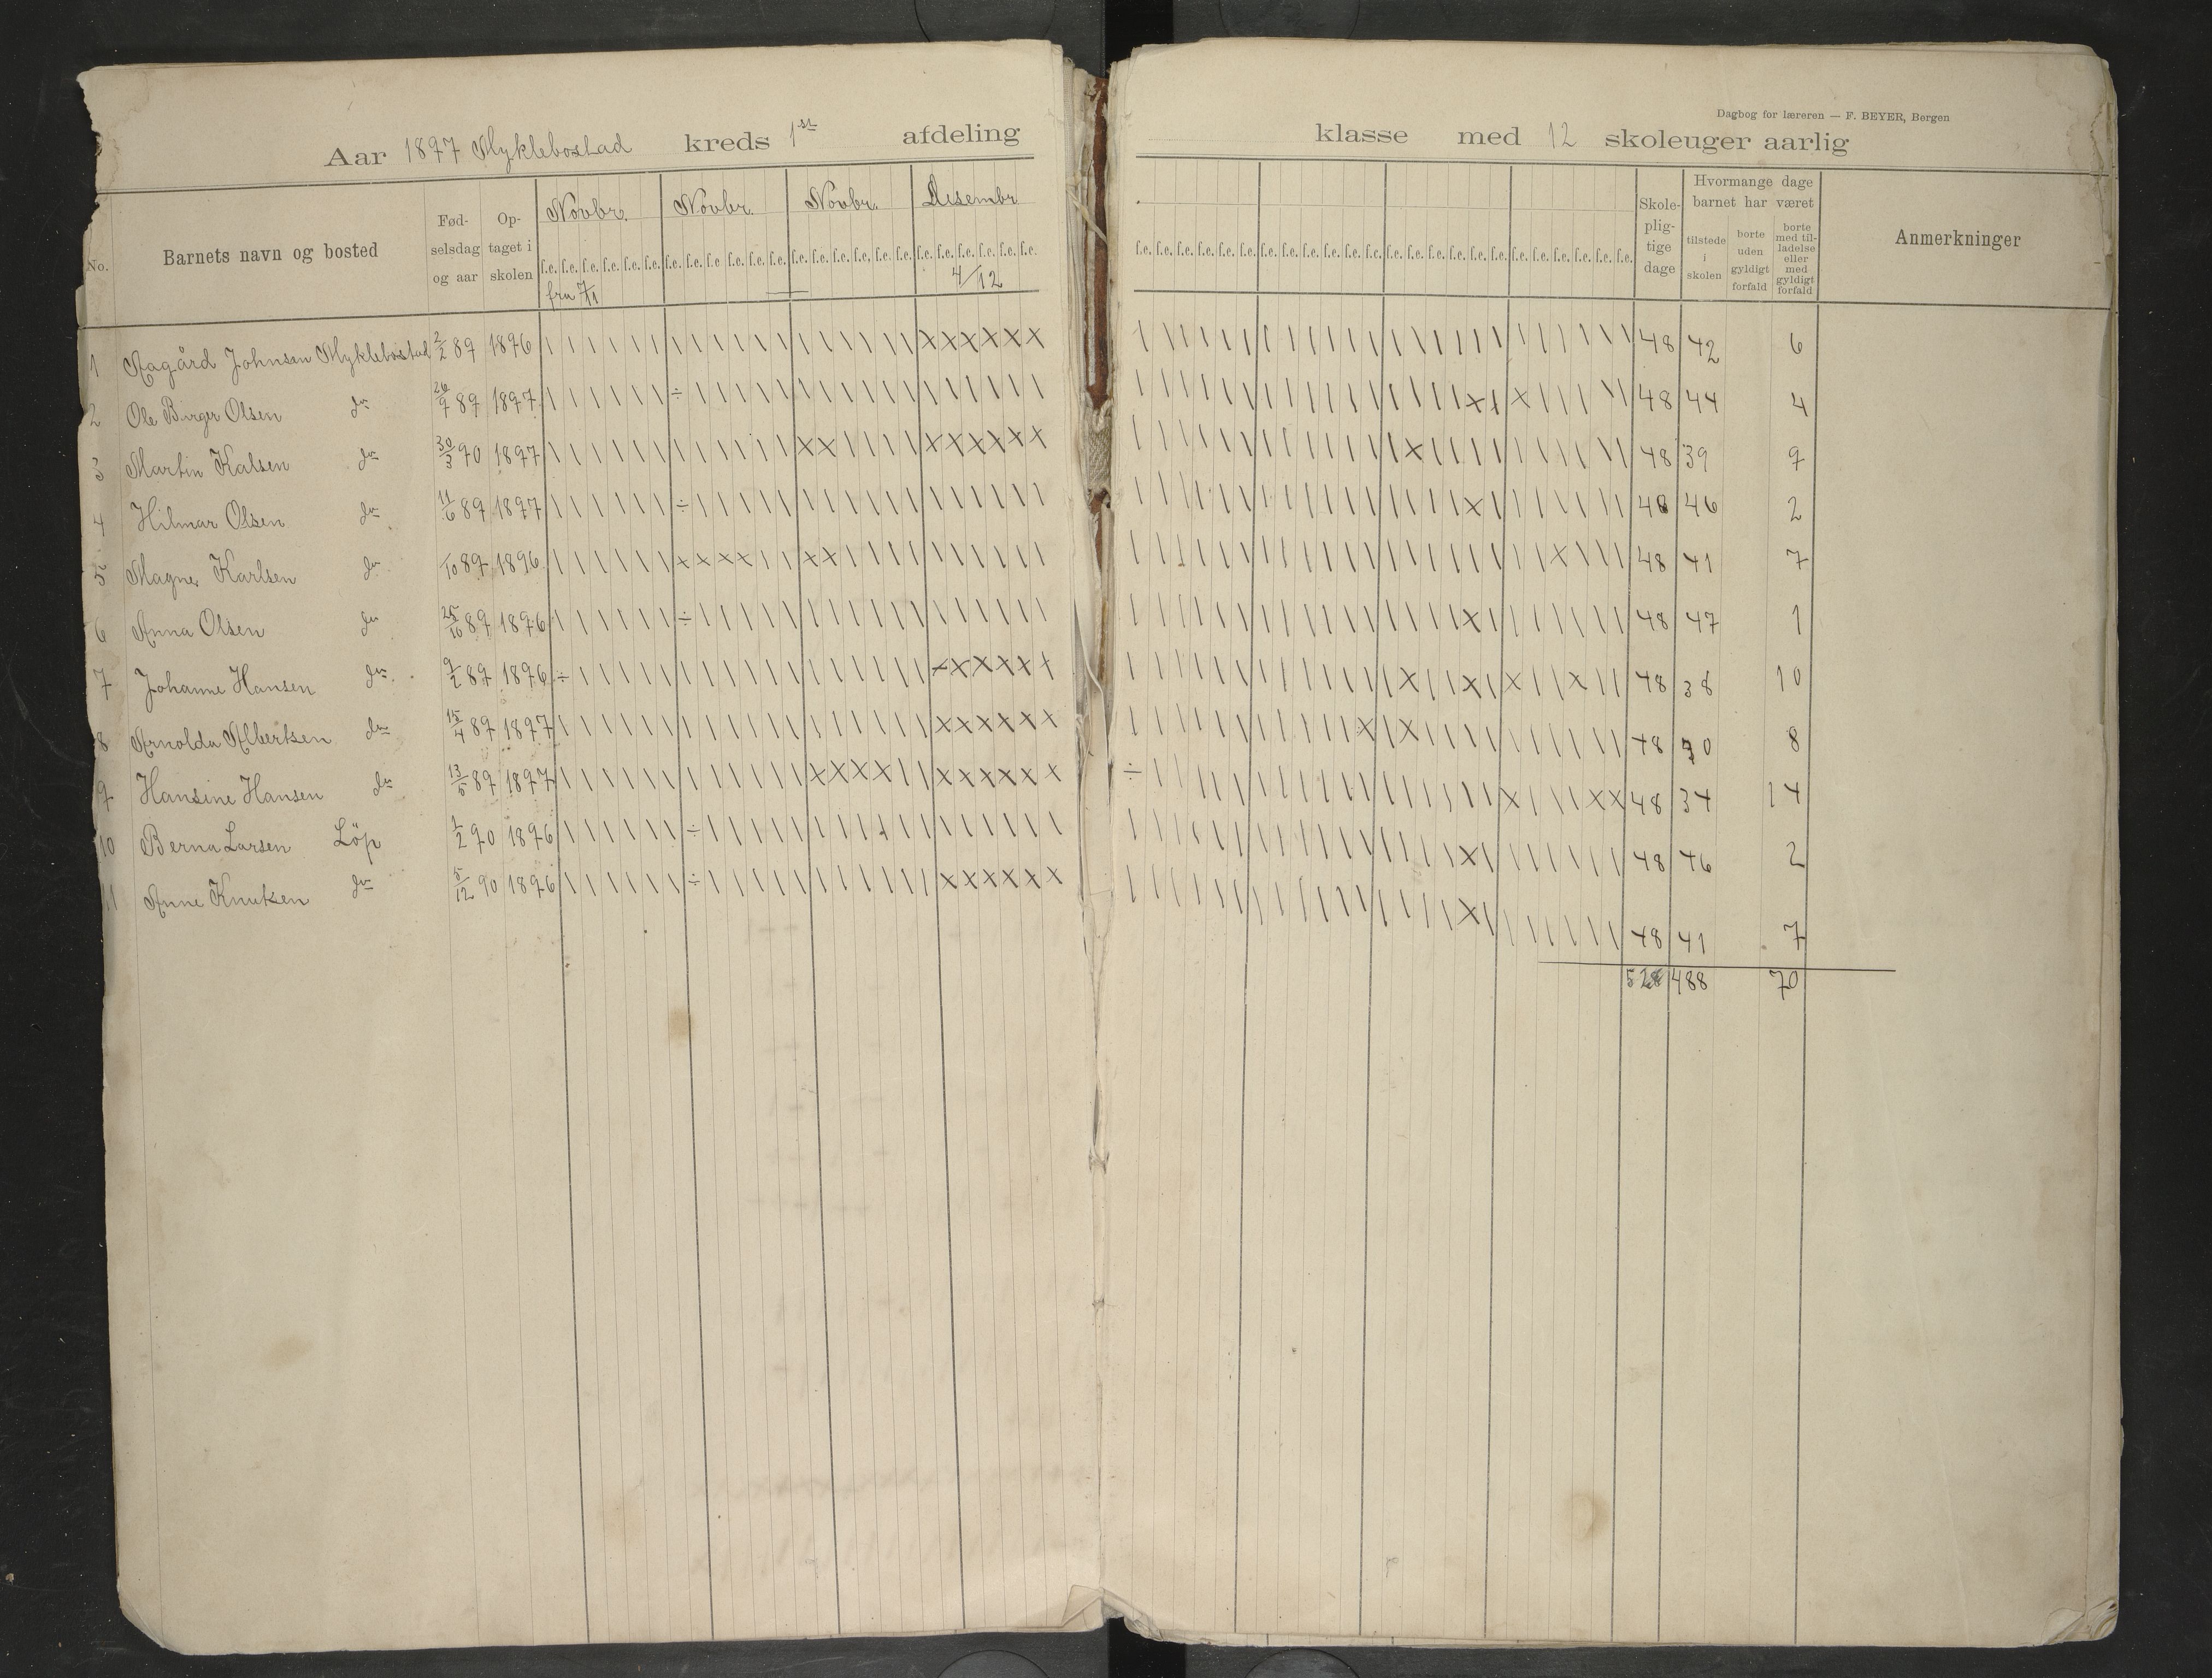 Dagbog for læreren — F. BEYER, Bergen
Aar 1897 Myklebostad kreds 1st afdeling klasse med 12 skoleuger aarlig
No. Barnets navn og bosted Fødselsdag og aar Optaget i skolen Novbr. Novbr. Novbr. Desembr Skolepligtige dage Hvormange dage barnet har været tilstede i skolen borte uden gyldigt forfald borte med tilladelse eller med gyldigt forfald Anmerkninger
f.e. f.e. f.e. f.e. f.e. f.e. f.e. f.e. f.e f.e. f.e. f.e. f.e. f.e. f.e. f.e. f.e. f.e. f.e. f.e. f.e. f.e. f.e. f.e. f.e. f.e. f.e. f.e. f.e. f.e. f.e. f.e. f.e. f.e. f.e. f.e. f.e. f.e. f.e. f.e. f.e. f.e. f.e. f.e. f.e. f.e. f.e. f.e.
fra 7/11 — 4/12
1 Aagård Johnsen Myklebostad 2/2 89 1896 48 42 6
2 Ole Birger Olsen do 26/9 89 1897 48 44 4
3 Martin Kalsen do 30/3 90 1897 48 39 9
4 Hilmar Olsen do 11/6 89 1897 48 46 2
5 Magner Karlsen do /10 89 1896 48 41 7
6 Anna Olsen do 25/10 89 1896 48 47 1
7 Johanne Hansen do 9/2 89 1896 48 38 10
8 Arnolda Albertsen do 15/4 89 1897 48 40 8
9 Hansine Hansen do 13/5 89 1897 48 34 14
10 Berna Larsen Löp 1/2 90 1896 48 46 2
11 Anne Knutsen do 5/12 90 1896 48 41 7
528 488 70